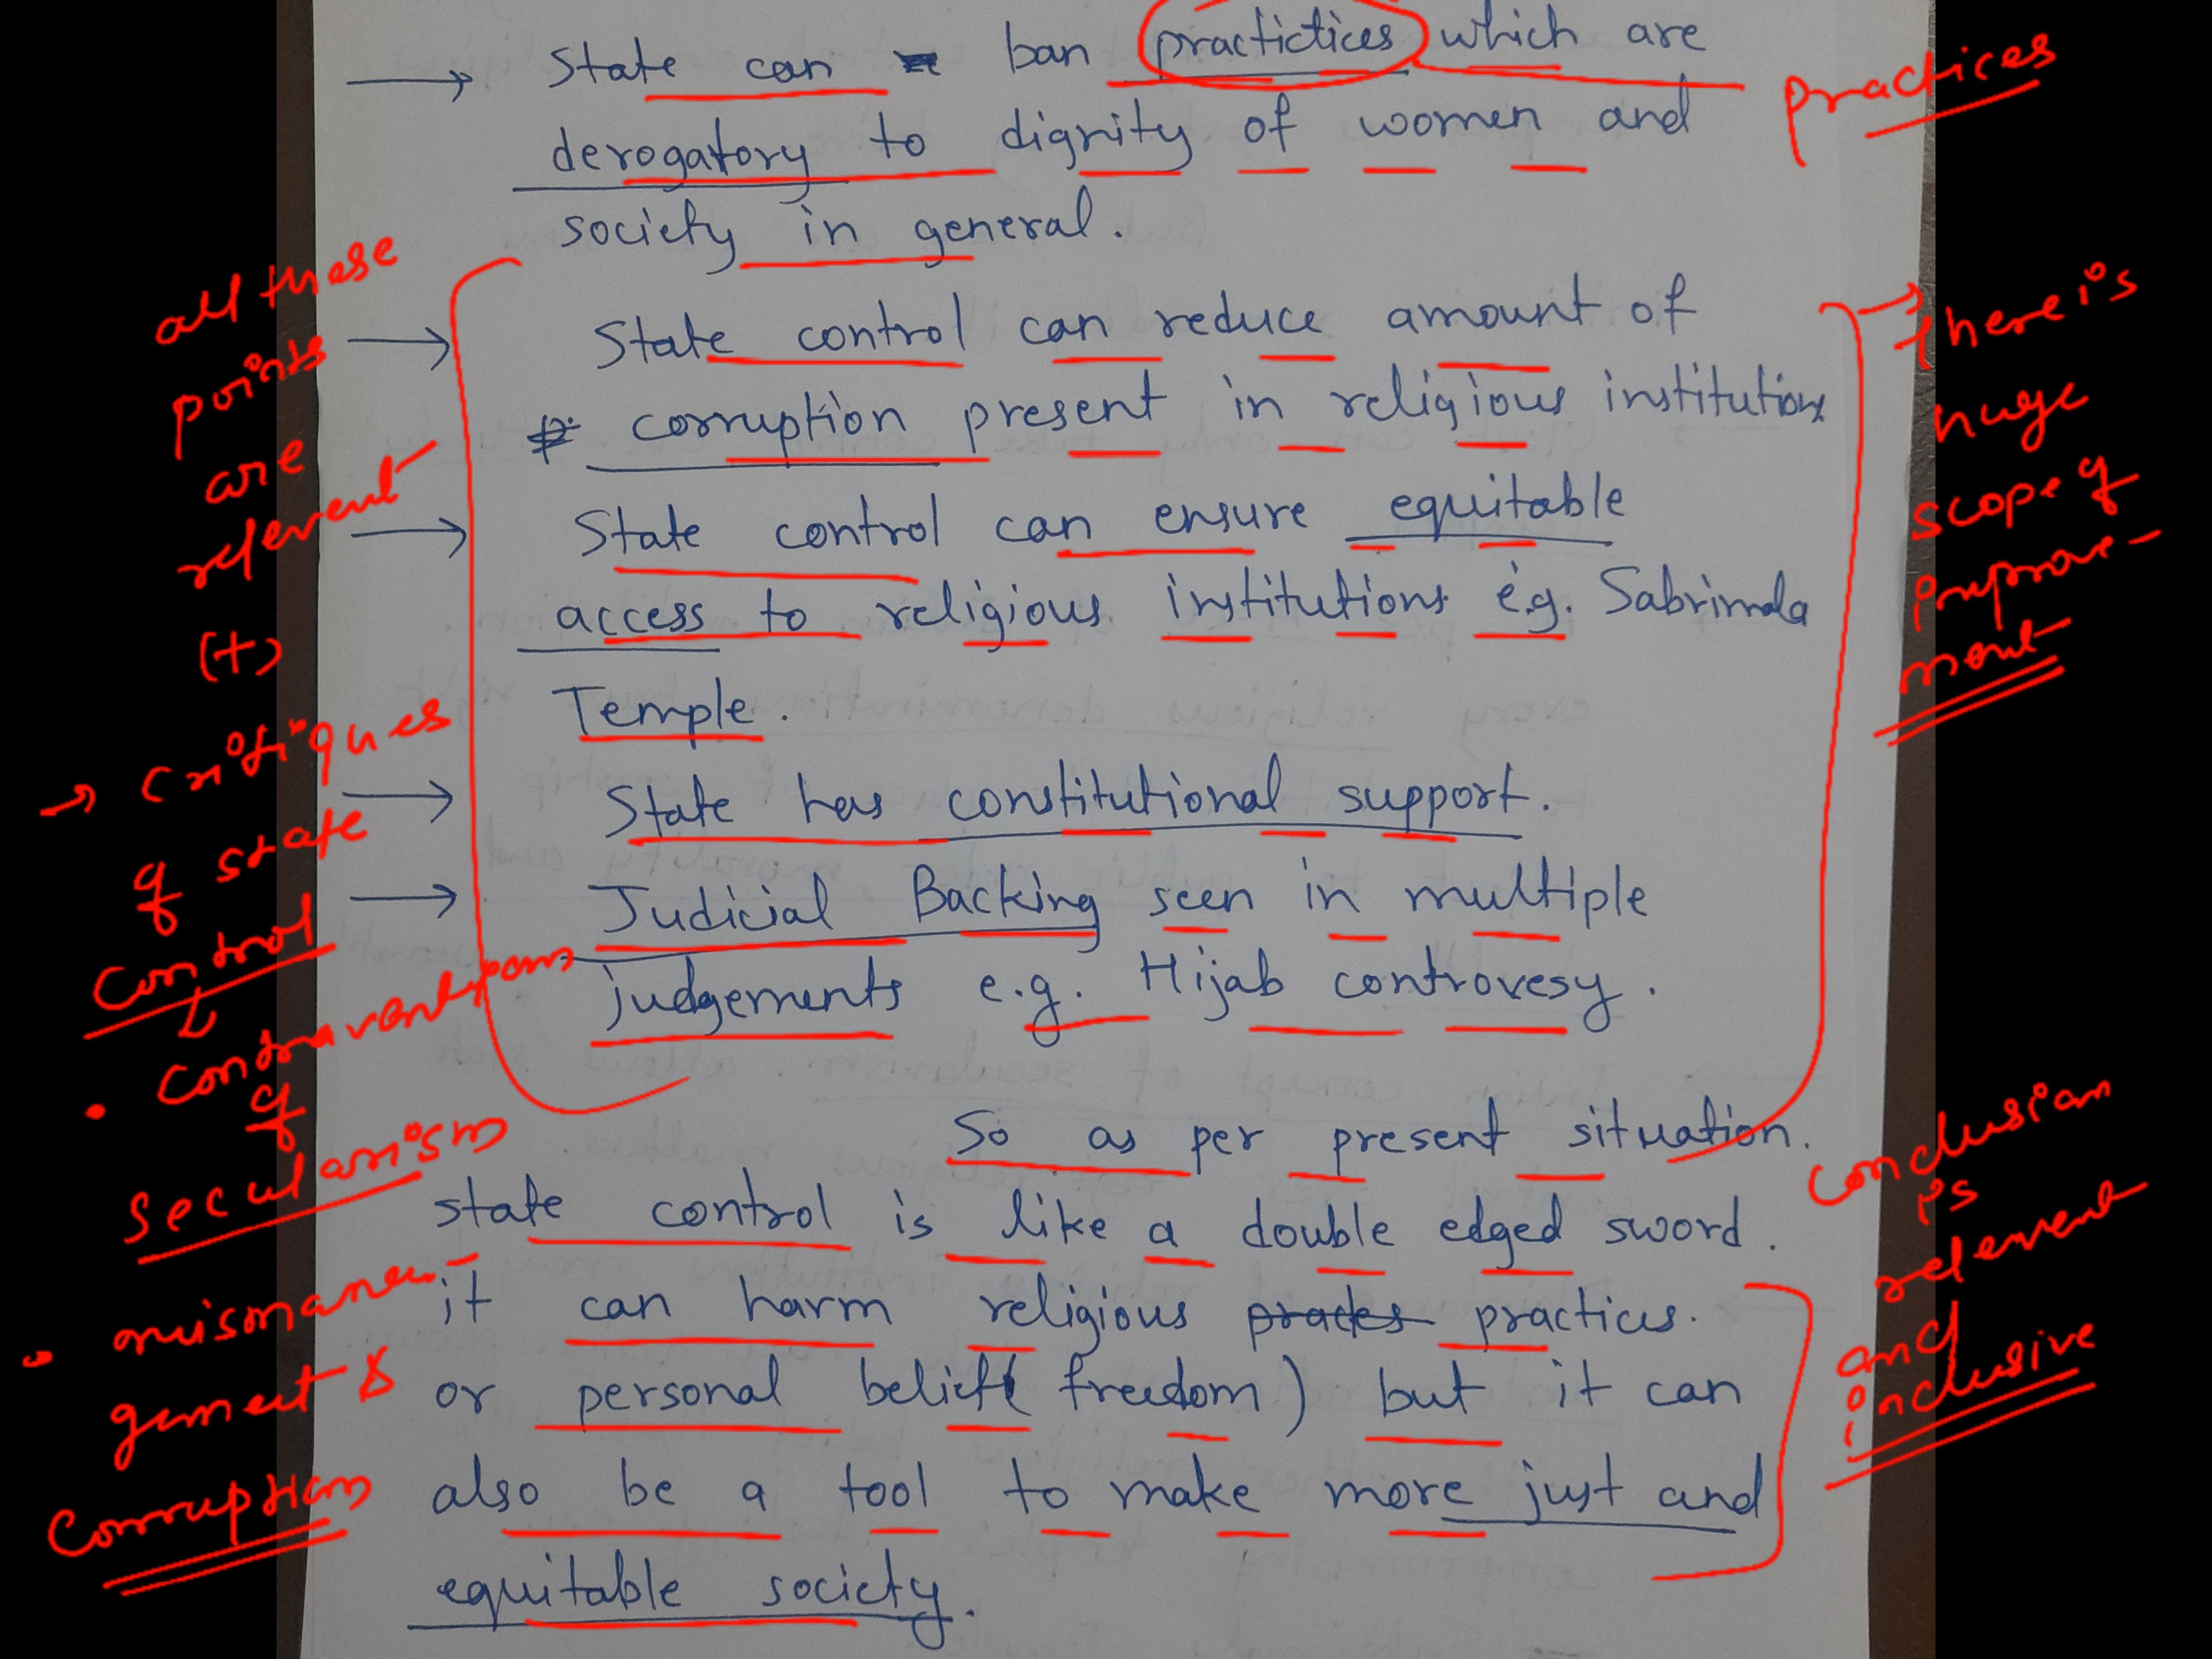 → State can ban practictices which are
derogatory to dignity of women and
society in general.
→ State control can reduce amount of
corruption present in religious institutions
→ State control can ensure equitable
access to religious institutions e.g. Sabrimala
Temple.
→ State has constitutional support.
→ Judicial Backing seen in multiple
judgements e.g. Hijab controvesy.
So as per present situation.
state control is like a double edged sword.
it can harm religious practices.
or personal belief (freedom) but it can
also be a tool to make more just and
equitable society.
practices
all these
points
are
relevent
(+)
→ critiques
of state
control
• contraventions
of
secularism
• mismana-
gement &
corruption
→ there is
huge
scope of
improve-
ment
conclusion
is
relevent
and
inclusive